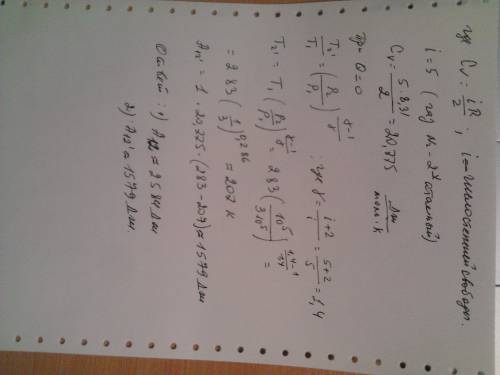 где Cv = iR/2 ; i – число степеней свободы.
i = 5 (газ N₂ – 2х атомный)
Cv = 5·8,31/2 = 20,775 Дж/моль·К
При Q = 0
T₂'/T₁ = (P₂/P₁)^((γ-1)/γ) ; где γ = (i+2)/i = (5+2)/5 = 1,4
T₂' = T₁(P₂/P₁)^((γ-1)/γ) = 283(10⁵/3·10⁵)^((1,4-1)/1,4) =
= 283(1/3)^0,286 ≈ 207 К
A₁₂' = 1·20,775·(283-207) ≈ 1579 Дж
Ответ: 1) A₁₂ = 2584 Дж
2) A₁₂' ≈ 1579 Дж